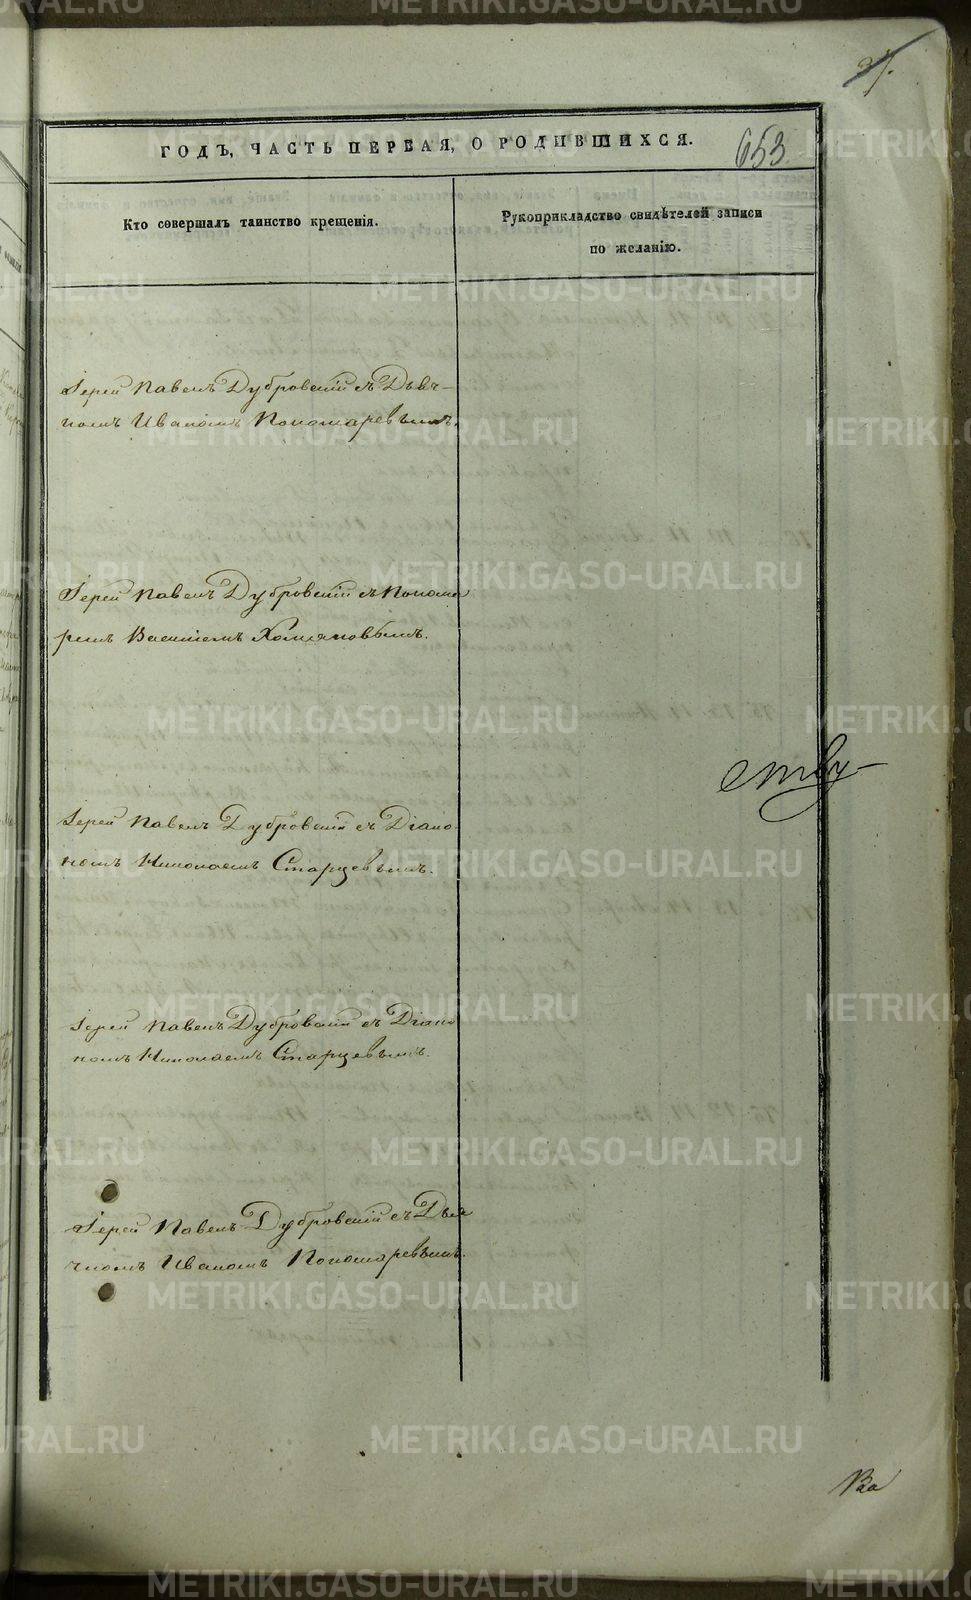 653
ГОДЪ, ЧАСТЬ ПЕРВАЯ, О РОДИВШИХСЯ.
Кто совершалъ таинство крещенія.
Рукоприкладство свидѣтелей записи
по желанію.
Іерей Павелъ Дубровскій съ Дьяч-
комъ Иваномъ Пономаревымъ.
Іерей Павелъ Дубровскій съ Понома
ремъ Василіемъ Хомяковымъ.
ству
Іерей Павелъ Дубровскій съ Діако
номъ Николаемъ Старцевымъ.
Іерей Павелъ Дубровскій съ Діако
номъ Николаемъ Старцевымъ.
Іерей Павелъ Дубровскій съ Дья
чкомъ Иваномъ Пономаревымъ.
METRIKI.GASO-URAL.RU